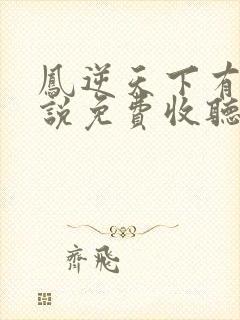 鳳逆天下有
說免費收聽
齊飛